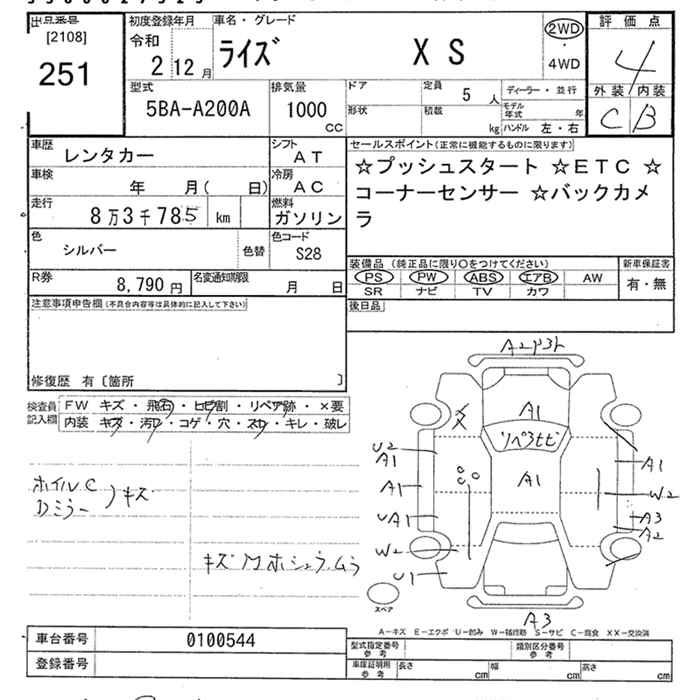 出品番号
[2108]
251
初度登録年月
令和
2 12 月
車名・グレード
ライズ X S
2WD
・
4WD
評 価 点
4
外装 内装
C B
型式
5BA-A200A
排気量
1000
CC
ドア
形状
定員
5 人
積載
kg
ディーラー・並行
モデル
年式 年
ハンドル 左・右
車歴
レンタカー
シフト
AT
車検
年 月( 日)
冷房
AC
走行
8万3千785 km
燃料
ガソリン
色
シルバー
色替
色コード
S28
R券
8,790 円
名変通知期限
月 日
セールスポイント(正常に機能するものに限ります)
☆プッシュスタート ☆ETC ☆
コーナーセンサー ☆バックカメ
ラ
装備品 (純正品に限り○をつけてください)
PS PW ABS エアB AW
SR ナビ TV カワ
新車保証書
有・無
後日品
注意事項申告欄(不具合内容等は具体的に記入して下さい)
修復歴 有〔箇所 〕
検査員
記入欄
FW キズ・飛石・ヒビ割・リペア跡・×要
内装 キズ・汚れ・コゲ・穴・スレ・キレ・破レ
ホイルC
Dミラー
キズ
A1
リペアヒビ
A1
U2
A1
A1
UA1
W2
U1
A1
W2
A3
A2
A3
スペア
A-キズ E-エクボ U-凹み W-補修跡 S-サビ C-腐食 XX-交換済
車台番号 0100544
登録番号
型式指定番号
参考
類別区分番号
参考
車庫証明用
参考
長さ cm 幅 cm 高さ cm